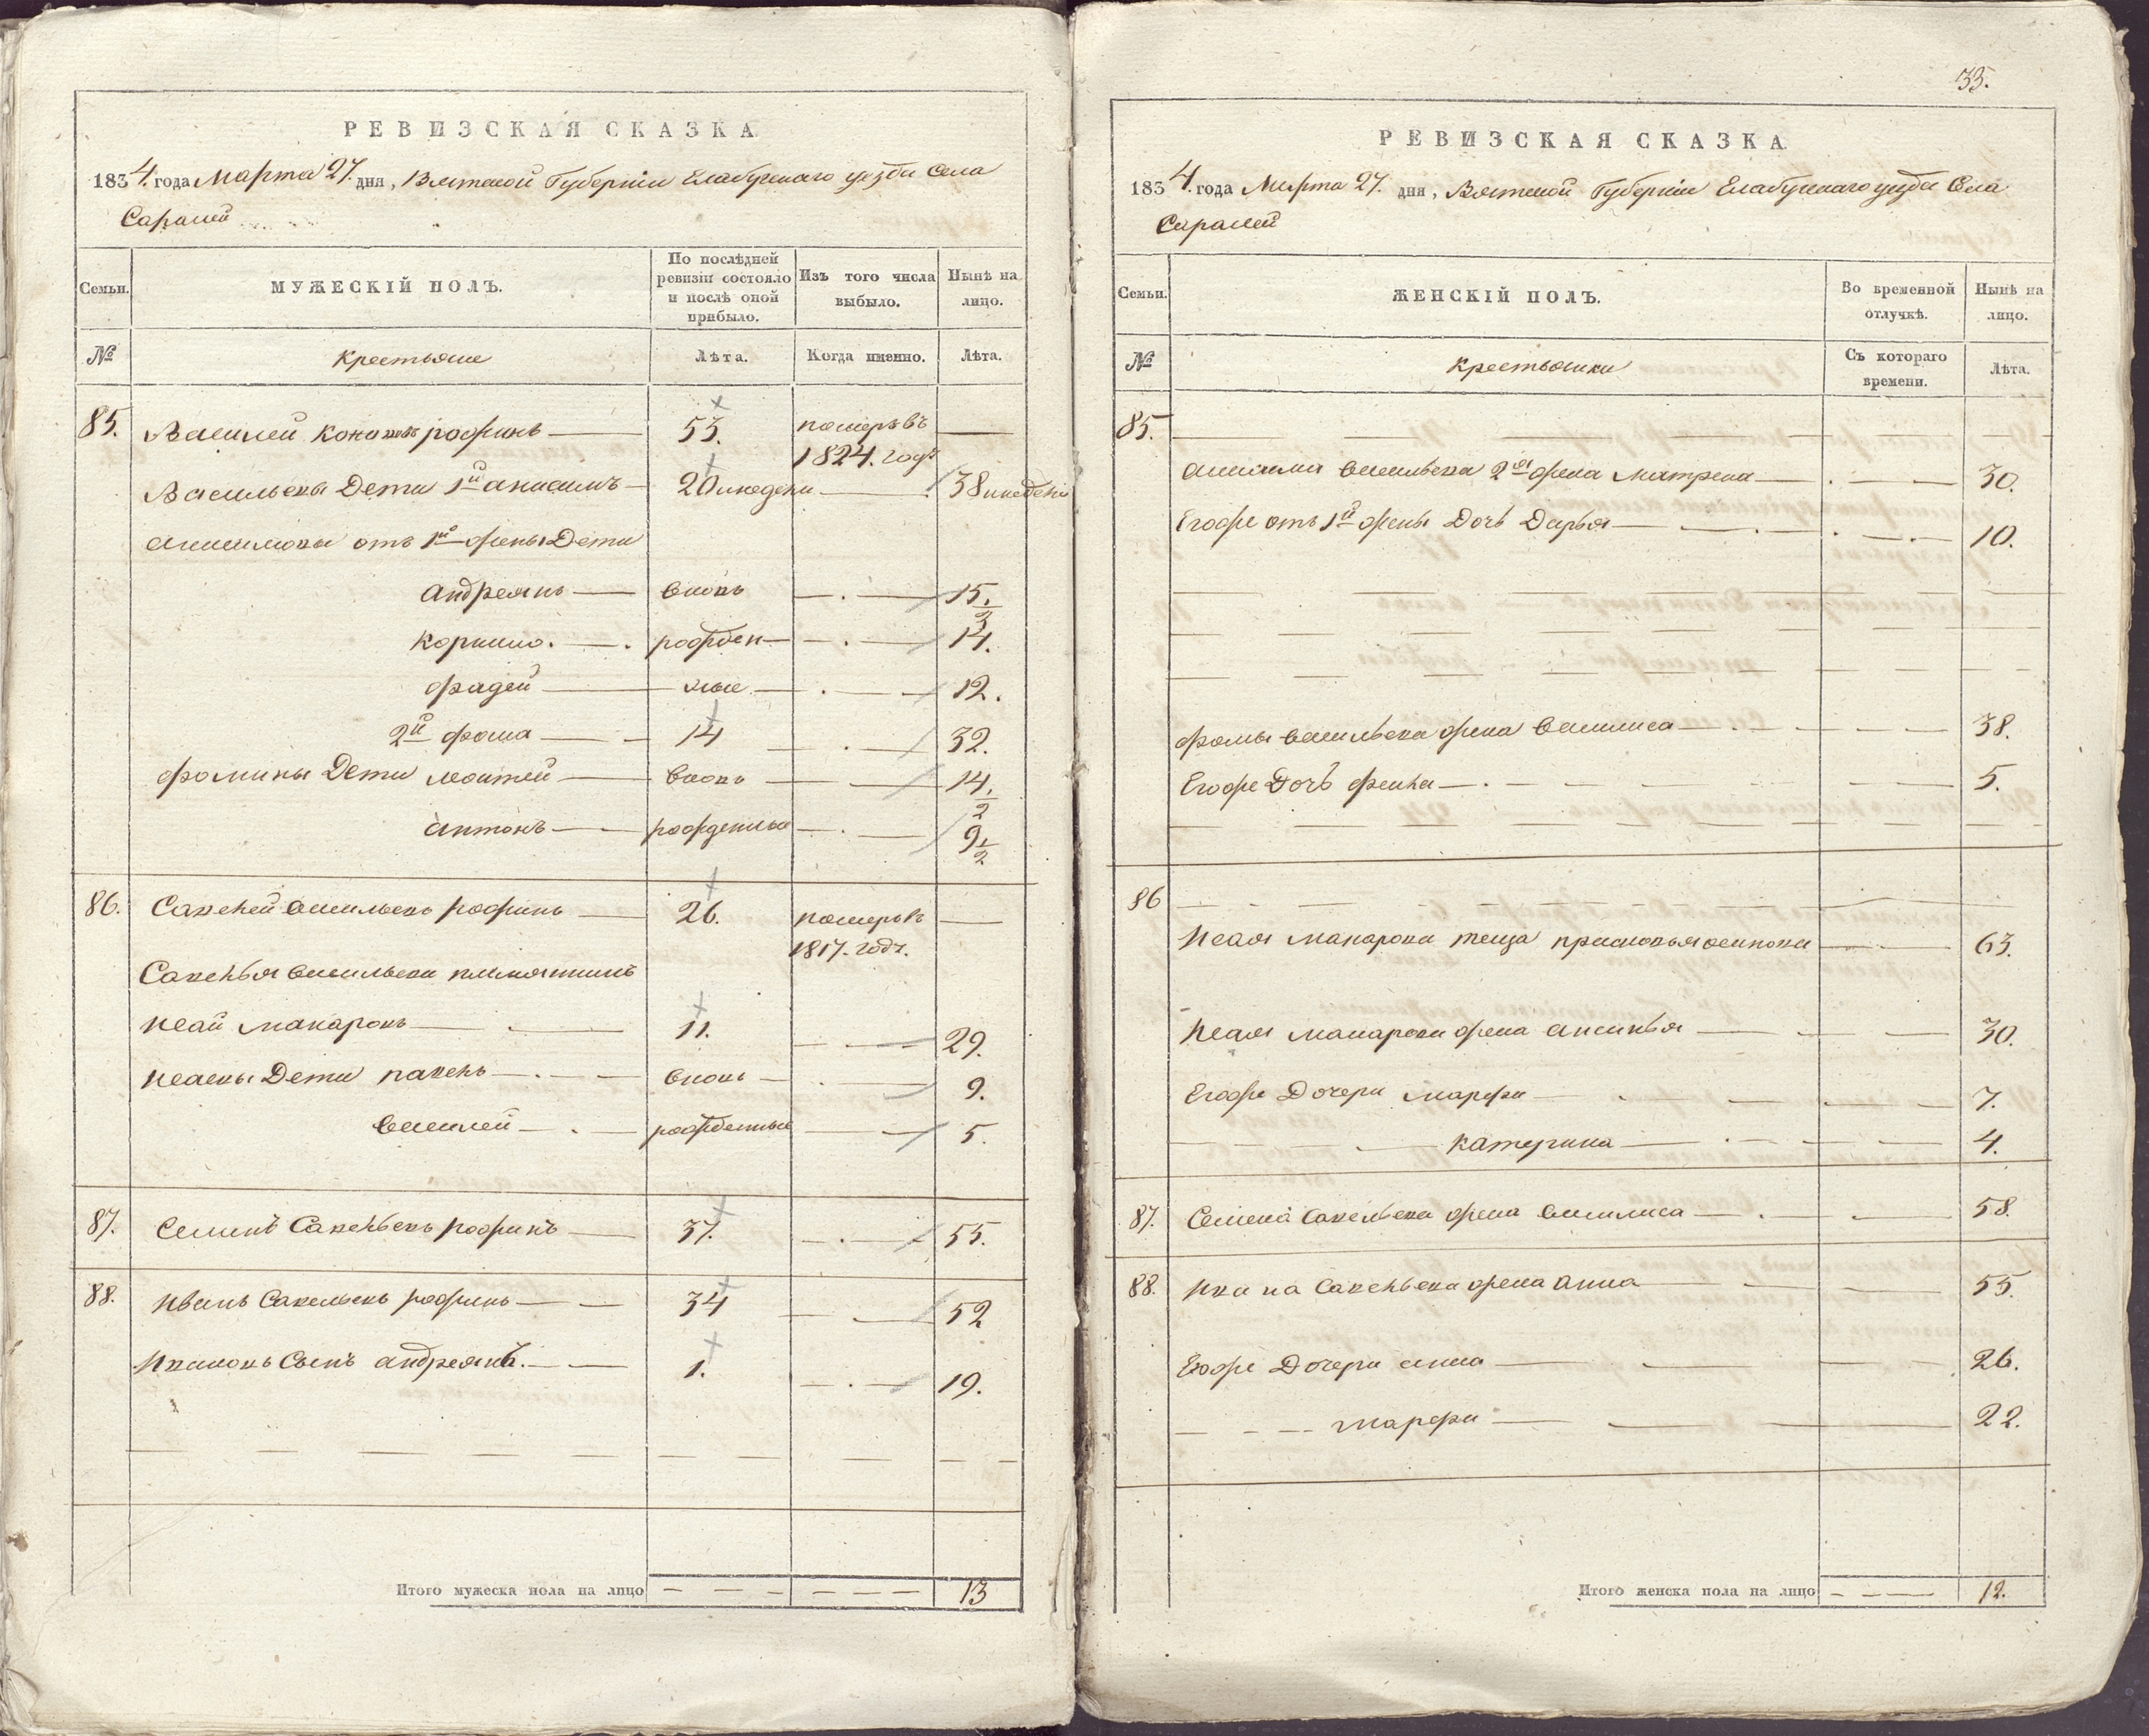 РЕВИЗСКАЯ СКАЗКА
1834. года Марта 27. дня, Вятской Губернии Елабужскаго уезда Села
Саралей
Семьи.
МУЖЕСКІЙ ПОЛЪ.
По послѣдней ревизіи состояло и послѣ оной прибыло.
Изъ того числа выбыло.
Нынѣ на лицо.
№
крестьяне
Лѣта.
Когда именно.
Лѣта.
85. Василей рофинъ 53. померъ въ
1824. годѣ
Васильевы Дети 1й анисимъ 20 38
анисимовы отъ 1й жены Дети
андреянъ вновь 15. 1/2
корнило. рожден 14.
фадей ные 12.
2й фома 14 32.
фомины Дети матвей вновь 14. 1/2
антонъ рожденные 9 1/2
86. Савелей васильевъ рофинъ 26. померъ въ
1817. годѣ.
Савелья васильева племянникъ
исай макаровъ 11. 29.
исаевы Дети вновь 9.
василей рожденные 5.
87. Семенъ Савельевъ рофинъ 37. 55.
88. иванъ Савельевъ рофинъ 34 52
ивановъ Сынъ андреянъ. 1. 19.
Итого мужеска пола на лицо 13
33.
РЕВИЗСКАЯ СКАЗКА
1834. года Марта 27. дня, Вятской Губернии Елабужскаго уезда Села
Саралей
Семьи.
ЖЕНСКІЙ ПОЛЪ.
Во временной отлучкѣ.
Нынѣ на лицо.
№
крестьянки
Съ котораго времени.
Лѣта.
85.
анисима васильева 2я жена матрена 30.
Егоже отъ 1й жены Дочь Дарья 10.
фомы васильева жена василиса 38.
Егоже Дочь 5.
86
исая макарова теща прасковья осипова 63.
исая макарова жена аксинья 30.
Егоже Дочери марфа 7.
катерина 4.
87. Семена Савельева жена василиса 58.
88. ивана Савельева жена анна 55.
Егоже Дочери анна 26.
марфа 22.
Итого женска пола на лицо 12.